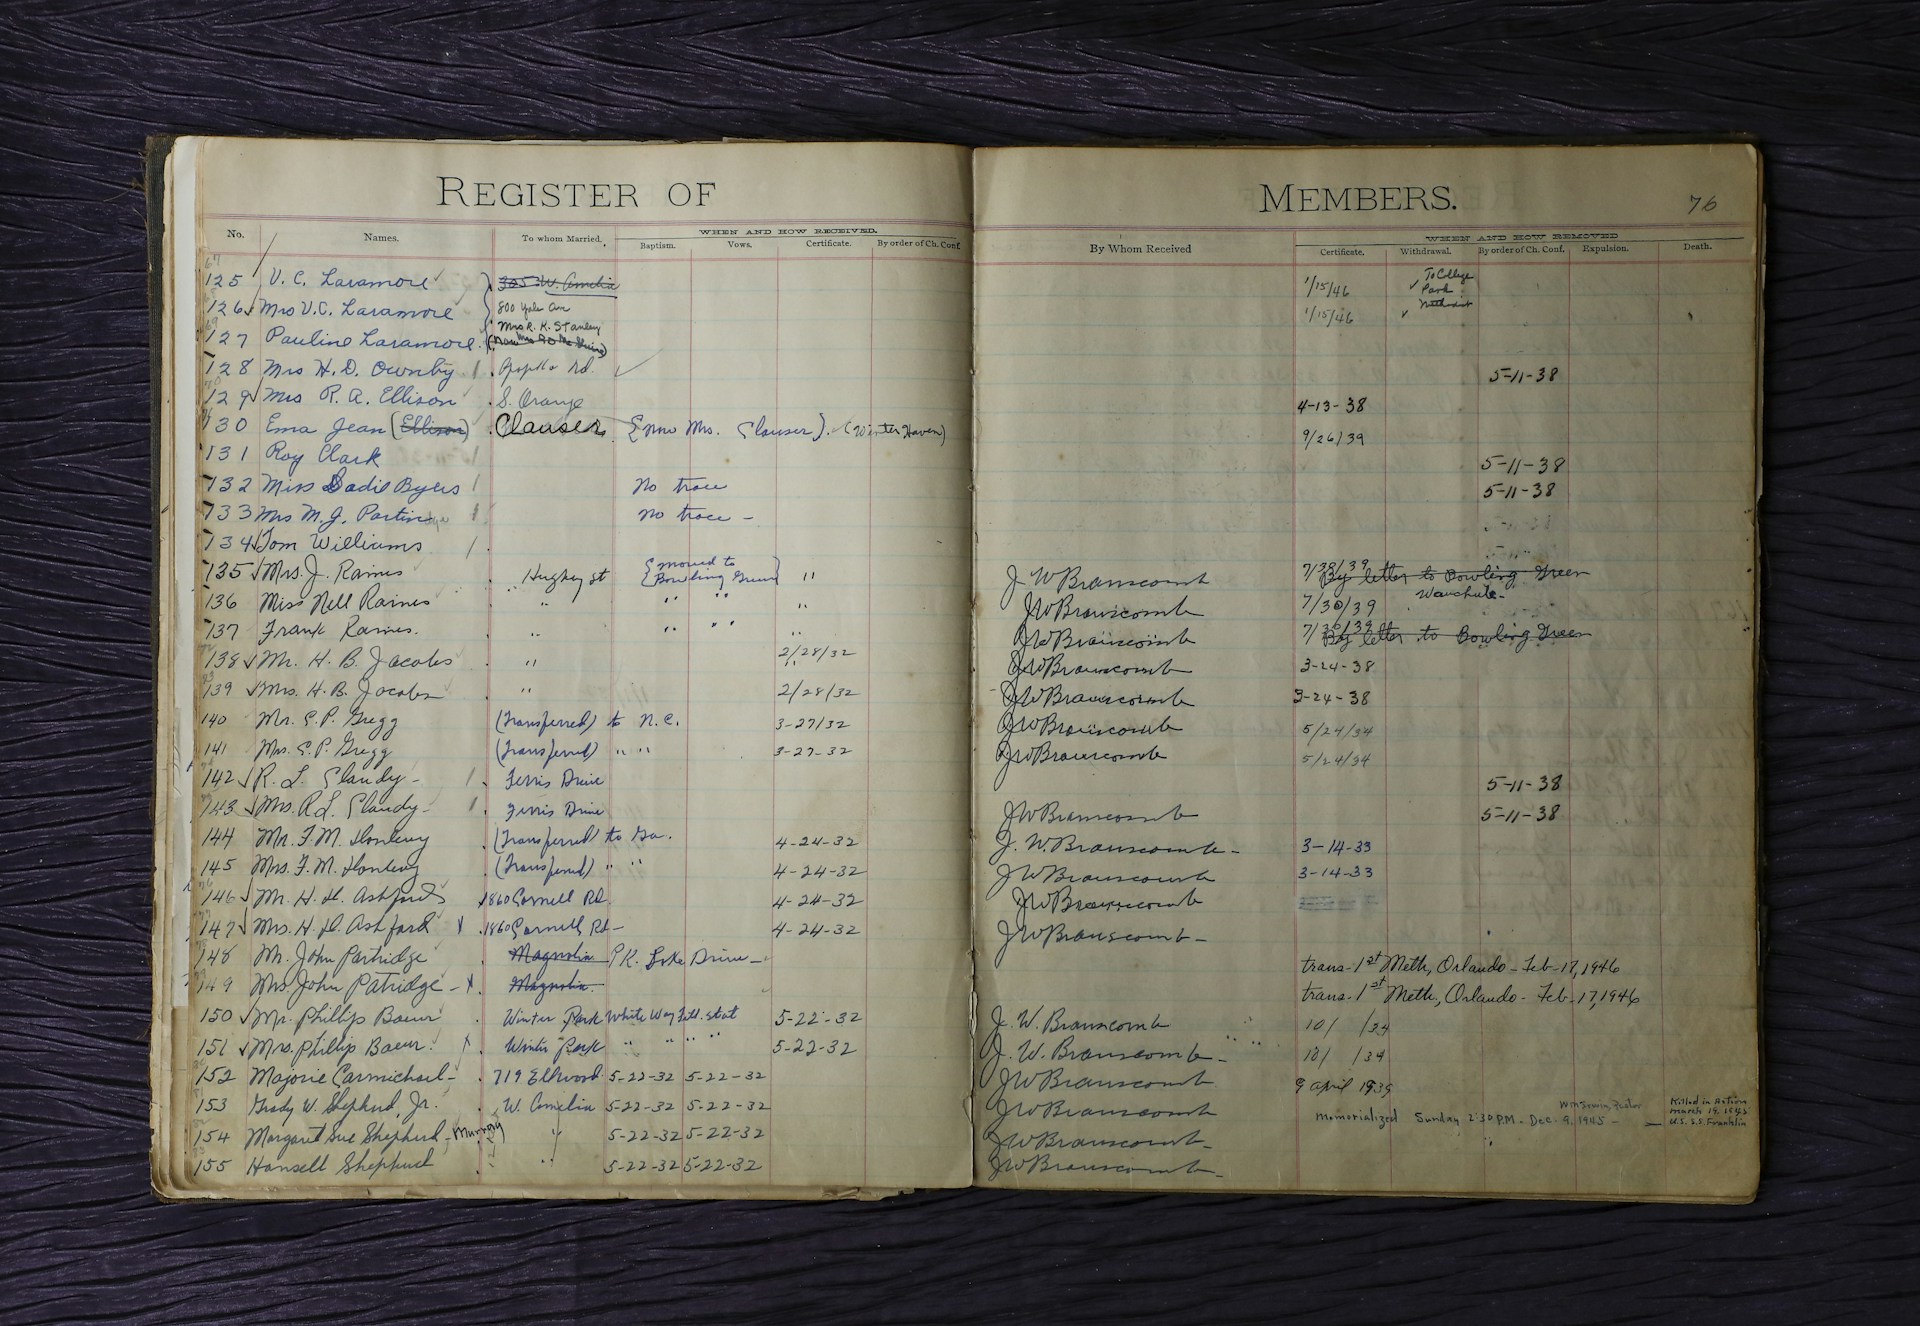 REGISTER OF MEMBERS. 76
WHEN AND HOW RECEIVED. WHEN AND HOW REMOVED
No. Names. To whom Married. Baptism. Vows. Certificate. By order of Ch. Conf. By Whom Received Certificate. Withdrawal. By order of Ch. Conf. Expulsion. Death.
125 V. C. Laramore 305 W. Amelia 1/15/46 To College Park
126 Mrs V.C. Laramore 800 Yale Ave 1/15/46
127 Pauline Laramore Mrs R. K. Stanley
128 Mrs H. D. Ownby Rd. 5-11-38
129 Mrs R. A. Ellison S. Orange 4-13-38
130 Ema Jean (Ellison) Clauser (now Mrs. Clauser) (Winter Haven) 9/26/39
131 Roy Clark 5-11-38
132 Miss Sadie Byers No trace 5-11-38
133 Mrs M. J. Partin No trace -
134 Tom Williams
135 Mrs. J. Raines Hughey st {moved to Bowling Green} " J W Branscomb 7/30/39 By letter to Bowling Green
136 Miss Nell Raines " " " " J W Branscomb 7/30/39 Wauchula-
137 Frank Raines. " " " " J W Branscomb 7/30/39 By letter to Bowling Green
138 Mr. H. B. Jacobs " 2/28/32 J W Branscomb 3-24-38
139 Mrs. H. B. Jacobs " 2/28/32 J W Branscomb 3-24-38
140 Mr. C. P. Gregg (Transferred) to N.C. 3-27/32 J W Branscomb 5/24/34
141 Mrs. C. P. Gregg (Transferred) " " 3-27-32 J W Branscomb 5/24/34
142 R. L. Claudy - Ferris Drive 5-11-38
143 Mrs. R L. Claudy - Ferris Drive J W Branscomb 5-11-38
144 Mr. F. M. (Transferred) to Ga. 4-24-32 J. W. Branscomb - 3-14-33
145 Mrs. F. M. (Transferred) " " 4-24-32 J W Branscomb 3-14-33
146 Mr. H. H. Ashford 1860 Cornell Rd. 4-24-32 J W Branscomb
147 Mrs. H. H. Ashford X 1860 Cornell Rd- 4-24-32 J W Branscomb -
148 Mr. John Partridge Magnolia Lake Drive - trans. 1st Meth, Orlando - Feb-17, 1946
149 Mrs. John Patridge - X Magnolia. trans. 1st Meth., Orlando - Feb. 17, 1946
150 Mr. Phillip Baeur Winter Park White Way Fill. stat 5-22-32 J. W. Branscomb 10/ /34
151 Mrs. Phillip Baeur. X Winter Park " " " " 5-22-32 J. W. Branscomb - 10/ /34
152 Majorie Carmichael - 719 Ellwood 5-22-32 5-22-32 J W Branscomb 9 April 1939
153 Grady W. Shepherd, Jr. W. Amelia 5-22-32 5-22-32 J W Branscomb Memorialized Sunday 2:30 P.M. - Dec. 9, 1945 - Pastor Killed in Action March 19, 1945 U.S.S. Franklin
154 Margaret Sue Shepherd - Murray " 5-22-32 5-22-32 J W Branscomb -
155 Hansell Shepherd " 5-22-32 5-22-32 J W Branscomb -